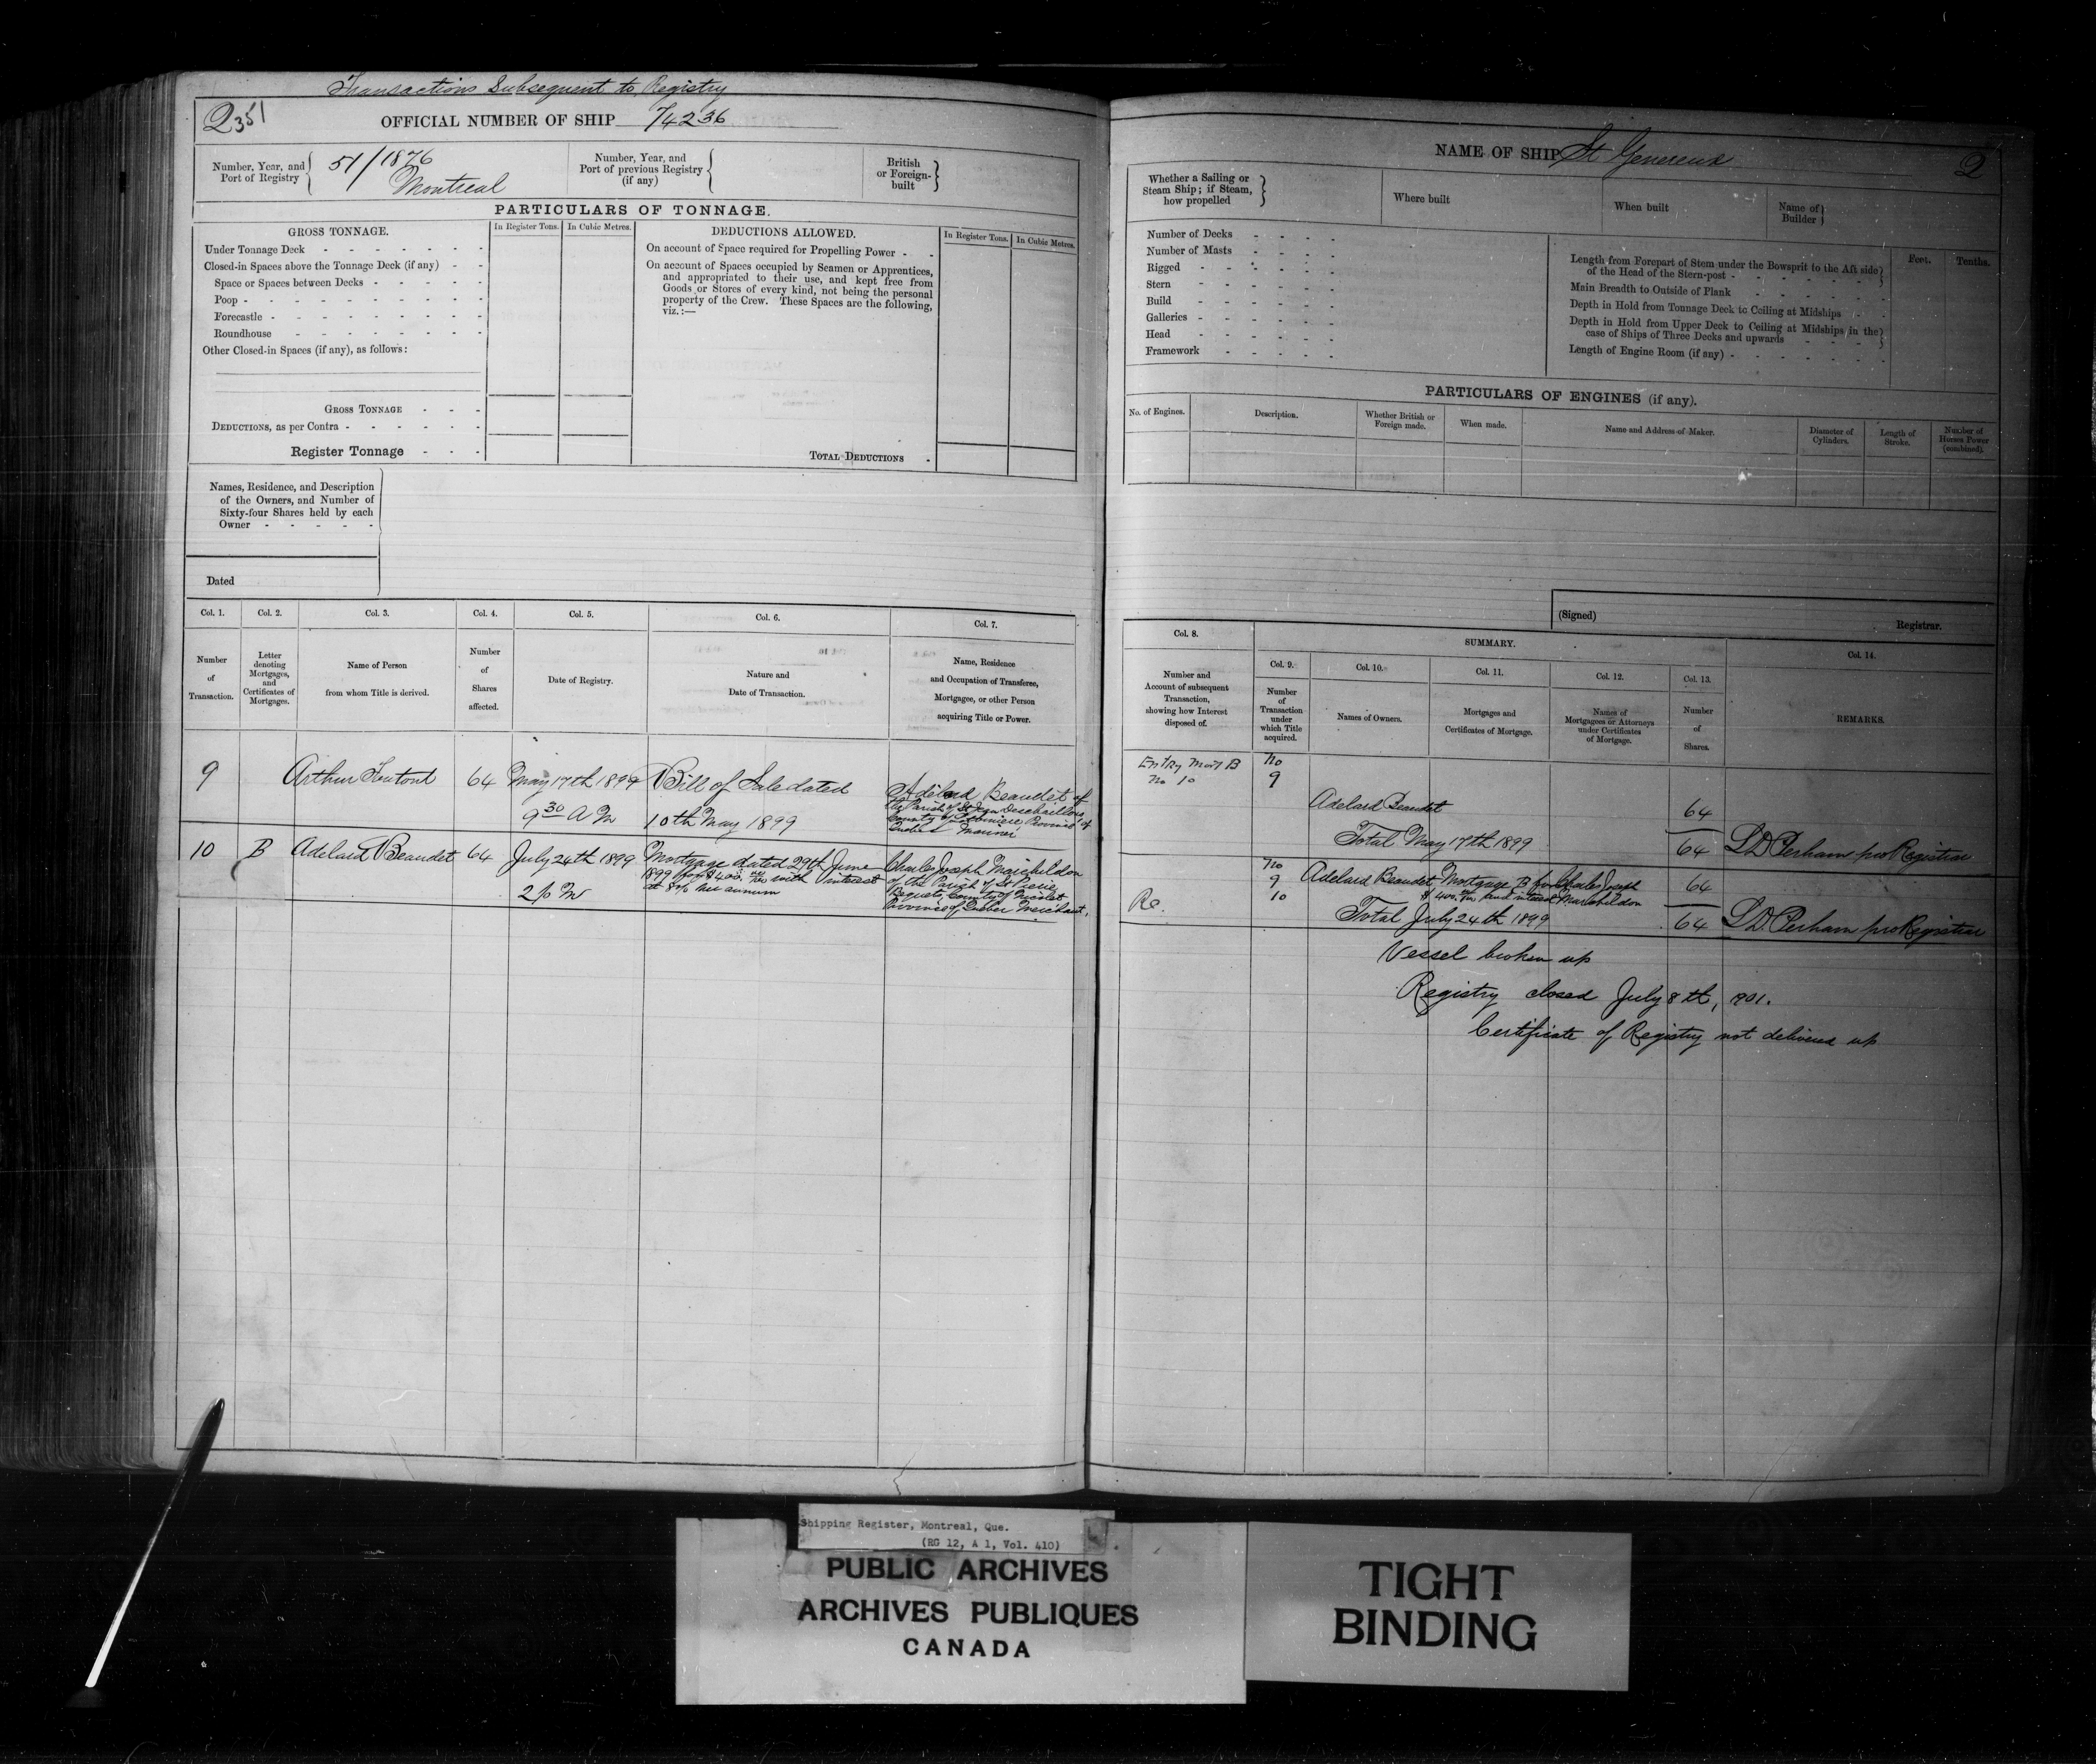 Transactions Subsequent to Registry
2351
OFFICIAL NUMBER OF SHIP 74236
Number, Year, and Port of Registry 51/1876 Montreal
Number, Year, and Port of previous Registry (if any)
British or Foreign-built
PARTICULARS OF TONNAGE.
GROSS TONNAGE.
In Register Tons. In Cubic Metres.
Under Tonnage Deck
Closed-in Spaces above the Tonnage Deck (if any)
Space or Spaces between Decks
Poop
Forecastle
Roundhouse
Other Closed-in Spaces (if any), as follows:
GROSS TONNAGE
DEDUCTIONS, as per Contra
Register Tonnage
DEDUCTIONS ALLOWED.
In Register Tons. In Cubic Metres.
On account of Space required for Propelling Power
On account of Spaces occupied by Seamen or Apprentices,
and appropriated to their use, and kept free from
Goods or Stores of every kind, not being the personal
property of the Crew. These Spaces are the following,
viz.:—
TOTAL DEDUCTIONS
Names, Residence, and Description
of the Owners, and Number of
Sixty-four Shares held by each
Owner
Dated
Col. 1. Col. 2. Col. 3. Col. 4. Col. 5. Col. 6. Col. 7.
Number of Transaction.
Letter denoting Mortgages, and Certificates of Mortgages.
Name of Person from whom Title is derived.
Number of Shares affected.
Date of Registry.
Nature and Date of Transaction.
Name, Residence and Occupation of Transferee, Mortgagee, or other Person acquiring Title or Power.
9 Arthur 64 May 17th 1899 Bill of Sale dated Adelard Beaudet of
9 30 A M 10th May 1899 the Parish of St Jean Deschaillons,
County of Lotbiniere, Province of
Quebec Mariner
10 B Adelard Beaudet 64 July 24th 1899 Mortgage dated 29th June Charles Joseph Marchildon
2 p M 1899 for $400 with interest of the Parish of St Pierre
at 8% per annum Bequets, County of Nicolet
Province of Quebec Merchant.
NAME OF SHIP St Genereux 2
Whether a Sailing or Steam Ship; if Steam, how propelled
Where built
When built
Name of Builder
Number of Decks
Number of Masts
Rigged
Stern
Build
Galleries
Head
Framework
Feet. Tenths.
Length from Forepart of Stem under the Bowsprit to the Aft side
of the Head of the Stern-post
Main Breadth to Outside of Plank
Depth in Hold from Tonnage Deck to Ceiling at Midships
Depth in Hold from Upper Deck to Ceiling at Midships in the
case of Ships of Three Decks and upwards
Length of Engine Room (if any)
PARTICULARS OF ENGINES (if any).
No. of Engines.
Description.
Whether British or Foreign made.
When made.
Name and Address of Maker.
Diameter of Cylinders.
Length of Stroke.
Number of Horses Power (combined).
(Signed) Registrar.
Col. 8. SUMMARY. Col. 14.
Col. 9. Col. 10. Col. 11. Col. 12. Col. 13.
Number and Account of subsequent Transaction, showing how Interest disposed of.
Number of Transaction under which Title acquired.
Names of Owners.
Mortgages and Certificates of Mortgage.
Names of Mortgagees or Attorneys under Certificates of Mortgage.
Number of Shares.
REMARKS.
Entry Mort B No
No 10 9
Adelard Beaudet 64
Total May 17th 1899 64 L D Perham pro Registrar
No
9 Adelard Beaudet Mortgage B for Charles Joseph 64
10 $400 and interest Marchildon
Re.
Total July 24th 1899 64 L D Perham pro Registrar
Vessel broken up
Registry closed July 8th, 1901.
Certificate of Registry not delivered up
Shipping Register, Montreal, Que.
(RG 12, A 1, Vol. 410)
PUBLIC ARCHIVES
ARCHIVES PUBLIQUES
CANADA
TIGHT
BINDING